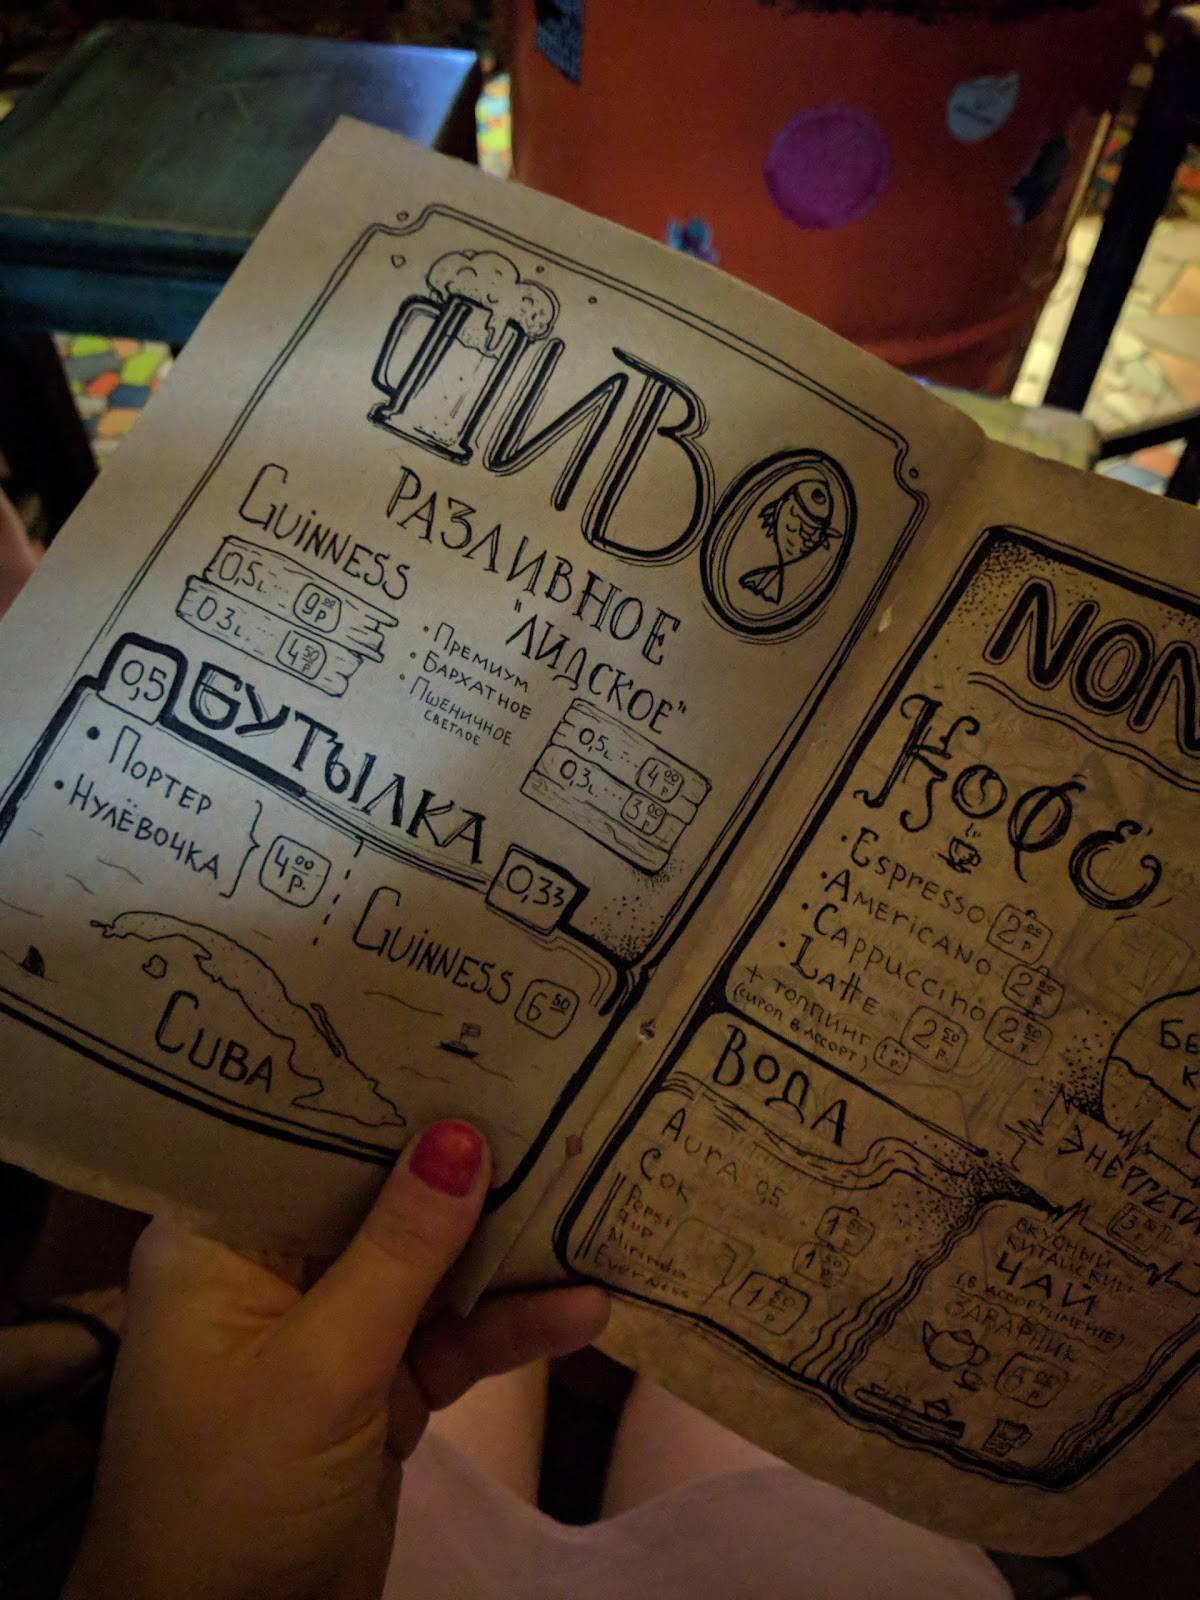 ПИВО
РАЗЛИВНОЕ
Guinness
0,5L... 9 00 р
0,3L... 4 50 р
"ЛИДСКОЕ"
• Премиум
• Бархатное
• Пшеничное
светлое
0,5L... 4 00 р
0,3L... 3 00 р
0,5 БУТЫЛКА 0,33
• Портер
• Нулёвочка
4 00 р.
Guinness 6 50
Cuba
NON
Кофе
• Espresso 2 00 р
• Americano 2 00 р
• Cappuccino 2 50 р
• Latte 2 50 р
+ топпинг 1
(сироп в ассорт)
Вода
Aura 0,5
Сок
Pepsi
7up
Mirinda
Evervess
1 50 р
БЕ
К
Энергети
вкусный
китайский
ЧАЙ
(в ассортименте)
заварник